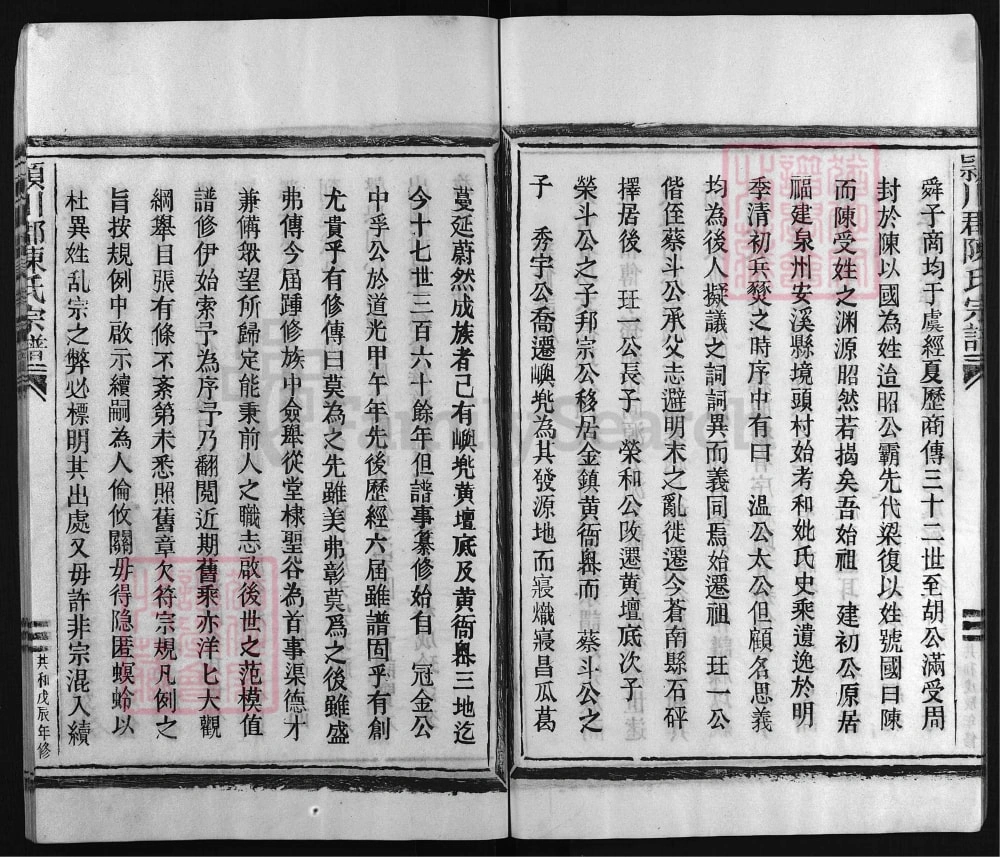 舜子商均于虞經夏歷商傳三十二世至胡公滿受周
封於陳以國為姓迨昭公霸先代梁復以姓號國曰陳
而陳受姓之渊源昭然若揭矣吾始祖 建初公原居
福建泉州安溪縣境頭村始考和妣氏史乘遺逸於明
季清初兵燹之時序中有曰 温公太公但顧名思義
均為後人擬議之詞詞異而義同焉始遷祖 玨一公
偕侄蔡斗公承父志避明末之亂徙遷今蒼南縣石砰
擇居後 玨一公長子 榮和公改遷黄壇底次子
榮斗公之子邦宗公移居金鎮黄衙嶴而 蔡斗公之
子 秀宇公喬遷嶼兠為其發源地而寝熾寝昌瓜葛
蔓延蔚然成族者己有嶼兠黄壇底及黄衙嶴三地迄
今十七世三百六十餘年但譜事纂修始自 冠金公
中孚公於道光甲午年先後歷經六届雖譜固乎有創
尤貴乎有修傳曰莫為之先雖美弗彰莫爲之後雖盛
弗傳今届踵修族中僉舉從堂棣聖谷為首事渠德才
兼備衆望所歸定能秉前人之職志啟後世之范模值
譜修伊始索予為序予乃翻閲近期舊乘亦洋匕大觀
綱舉目張有條不紊第未悉照舊章欠符宗規凡例之
旨按規例中啟示續嗣為人倫攸關毋得隐匿螟蛉以
杜異姓乱宗之弊必標明其出處又毋許非宗混入續
潁川郡陳氏宗譜
共和戊辰年修
FamilySearch